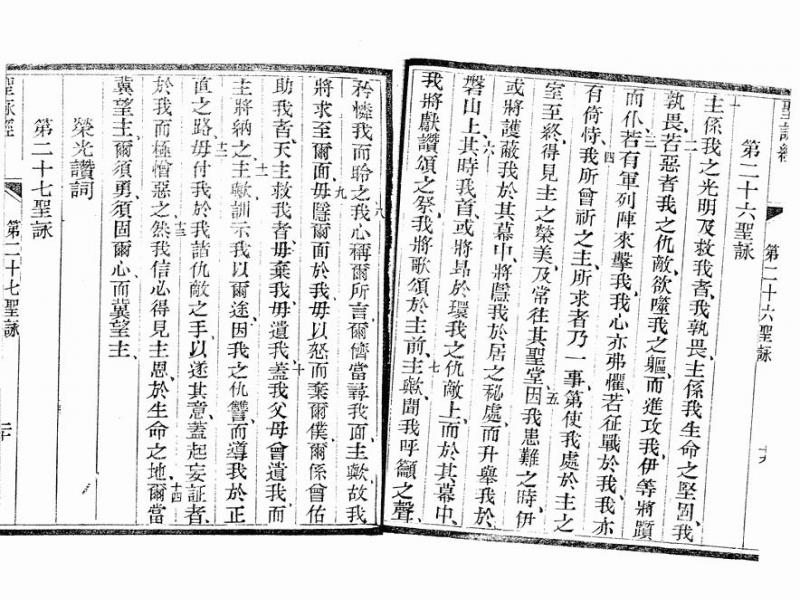 聖詠經 第二十六聖詠 十九
第二十六聖詠
一主係我之光明及救我者、我孰畏、主係我生命之堅固、我
孰畏、二若惡者我之仇敵欲噬我之軀、而進攻我、伊等將躓
而仆、三若有軍列陣來擊我、我心亦弗懼、若征戰於我、我亦
有倚恃、四我所曾祈之主、所求者乃一事、第使我處於主之
室至終、得見主之榮美、及常往其聖堂、五因我患難之時、伊
或將護蔽我於其幕中、將隱我於居之秘處、而升舉我於
磐山上、六其時我首、或將昂於環我之仇敵上、而於其幕中、
我將獻讚頌之祭、我將歌頌於主前、七主歟、聞我呼籲之聲、
矜憐我而聆之、八我心稱爾所言、爾儕當尋我面、主歟、故我
將求至爾面、九毋隱爾面於我、毋以怒而棄爾僕、爾係曾佑
助我者、天主救我者、毋棄我、毋遺我、十蓋我父母曾遺我、而
主將納之、十一主歟、訓示我以爾途、因我之仇讐、而導我於正
直之路、十二毋付我於我諸仇敵之手、以遂其意、蓋起妄証者、
於我而極憎惡之、十三然我信必得見主恩於生命之地、十四爾當
冀望主、爾須勇、須固爾心、而冀望主、
榮光讚詞
第二十七聖詠
聖詠經 第二十七聖詠 二十